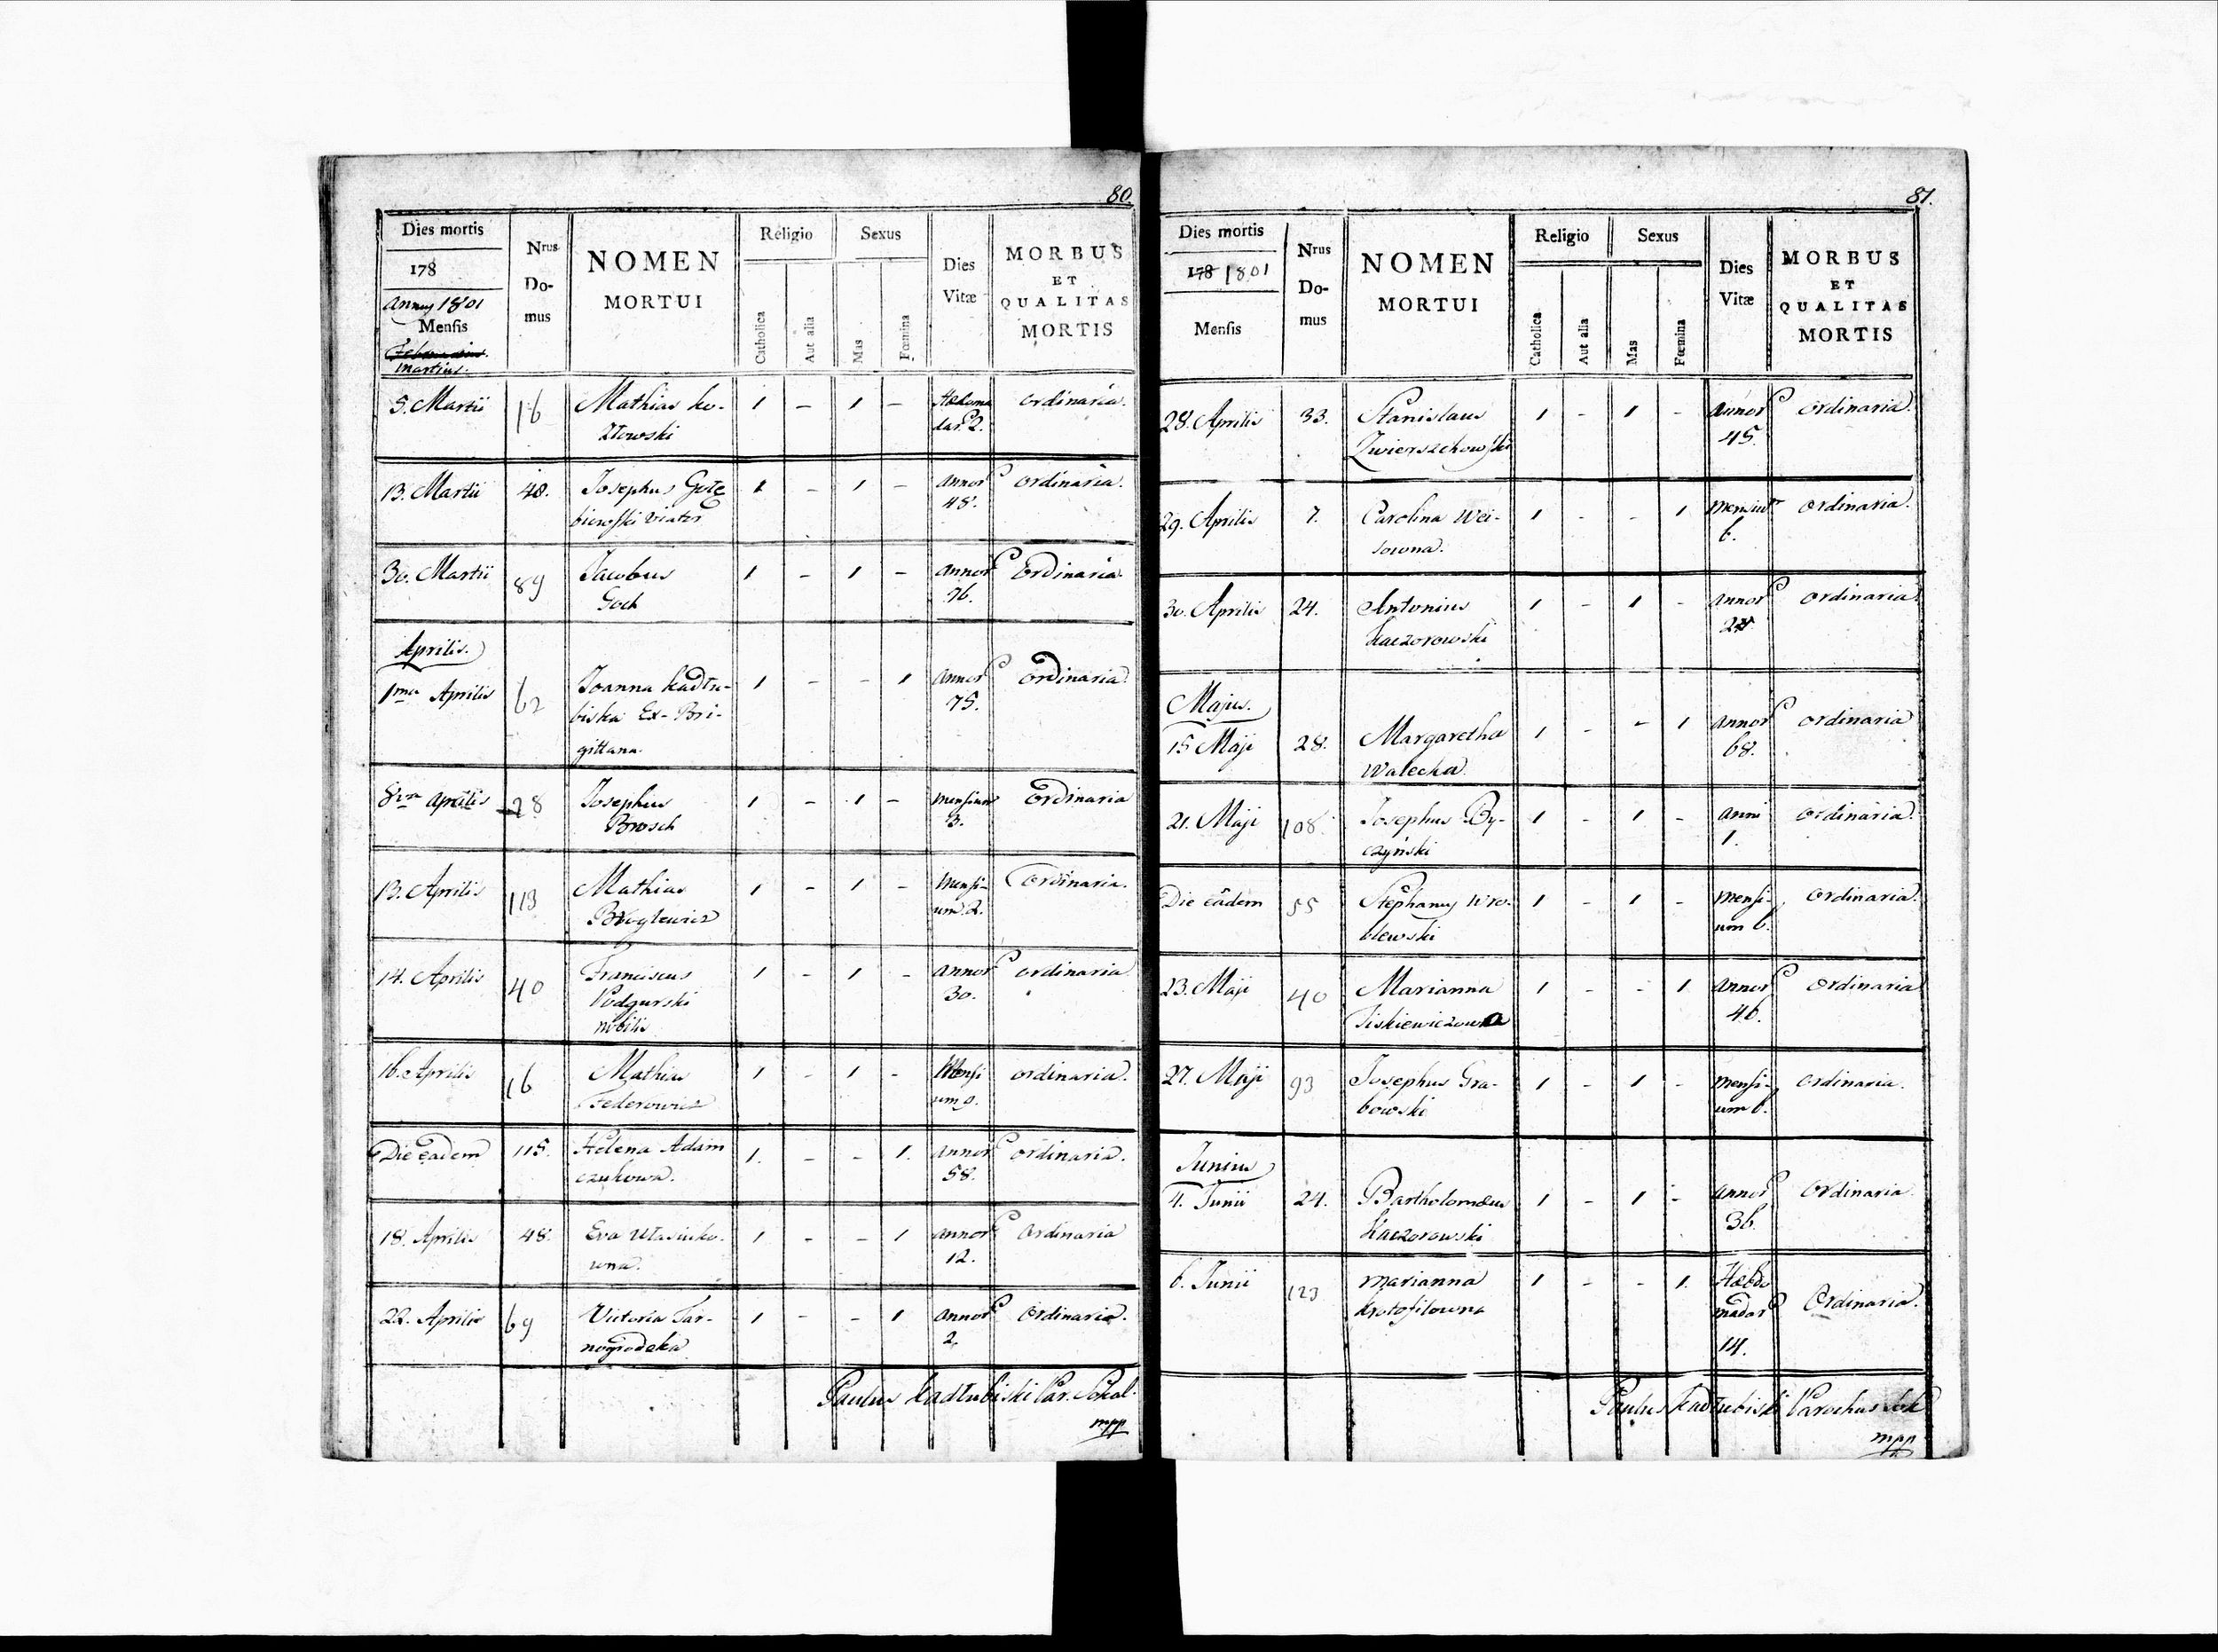 80.
Dies mortis
178
Annus 1801
Mensis
Februarius.
Martius.
Nrus
Do-
mus
NOMEN
MORTUI
Religio
Catholica
Aut alia
Sexus
Mas
Fœmina
Dies
Vitæ
MORBUS
ET
QUALITAS
MORTIS
5. Martii 16 Mathias Ko- 1 - 1 - Hebdoma ordinaria.
złowski dar. 2.
13. Martii 48. Josephus Gołę 1 - 1 - annor ordinaria.
biewski viator 48.
30. Martii 89 Jacobus 1 - 1 - annor ordinaria.
Goch 76.
Aprilis.
1ma Aprilis 62 Joanna Kadłu- 1 - - 1 annor ordinaria
biska Ex-Bri- 75.
gittana.
8va aprilis 28 Josephus 1 - 1 - mensium ordinaria
Brosch 3.
13. Aprilis 113 Mathias 1 - 1 - mensi- ordinaria.
um 2.
14. Aprilis 40 Franciscus 1 - 1 - annor ordinaria
Podgurski 30.
nobilis
16. Aprilis 16 Mathias 1 - 1 - Mensi ordinaria.
Federowicz um 9.
Die eadem 115. Helena Adam 1. - - 1. annor ordinaria.
czukowa. 58.
18. Aprilis 48. Eva 1 - - 1 annor ordinaria
wna. 12.
22. Aprilis 69 Victoria Tar- 1 - - 1 annor ordinaria.
nogrodzka 2.
Paulus Kadłubiski Par. Sokal.
mpp
81.
Dies mortis
178 1801
Mensis
Nrus
Do-
mus
NOMEN
MORTUI
Religio
Catholica
Aut alia
Sexus
Mas
Fœmina
Dies
Vitæ
MORBUS
ET
QUALITAS
MORTIS
28. Aprilis 33. Stanislaus 1 - 1 - annor ordinaria.
Zwierzchowski 45.
29. Aprilis 7. Carolina Wei- 1 - - 1 mensium ordinaria.
sowna. 6.
30. Aprilis 24. Antonius 1 - 1 - annor ordinaria
Kaczorowski
Majus.
15 Maji 28. Margaretha 1 - - 1 annor ordinaria
Walecka 68.
21. Maji 108. Josephus By- 1 - 1 - anni ordinaria.
czyński 1.
Die eâdem 55 Stephanus Wro- 1 - 1 - mensi- ordinaria.
blewski um 6.
23. Maji 40 Marianna 1 - - 1 annor ordinaria
Tiskiewiczowna 46.
27. Maji 93 Josephus Gra- 1 - 1 - mensi- ordinaria.
bowski um 6.
Junius
4. Junii 24. Bartholomæus 1 - 1 - annor ordinaria
Kaczorowski 36.
6. Junii 123 Marianna 1 - - 1. Hebdo
Krotofilowna madar Ordinaria.
14.
Paulus Kadłubiski Parochus Sok
mpp